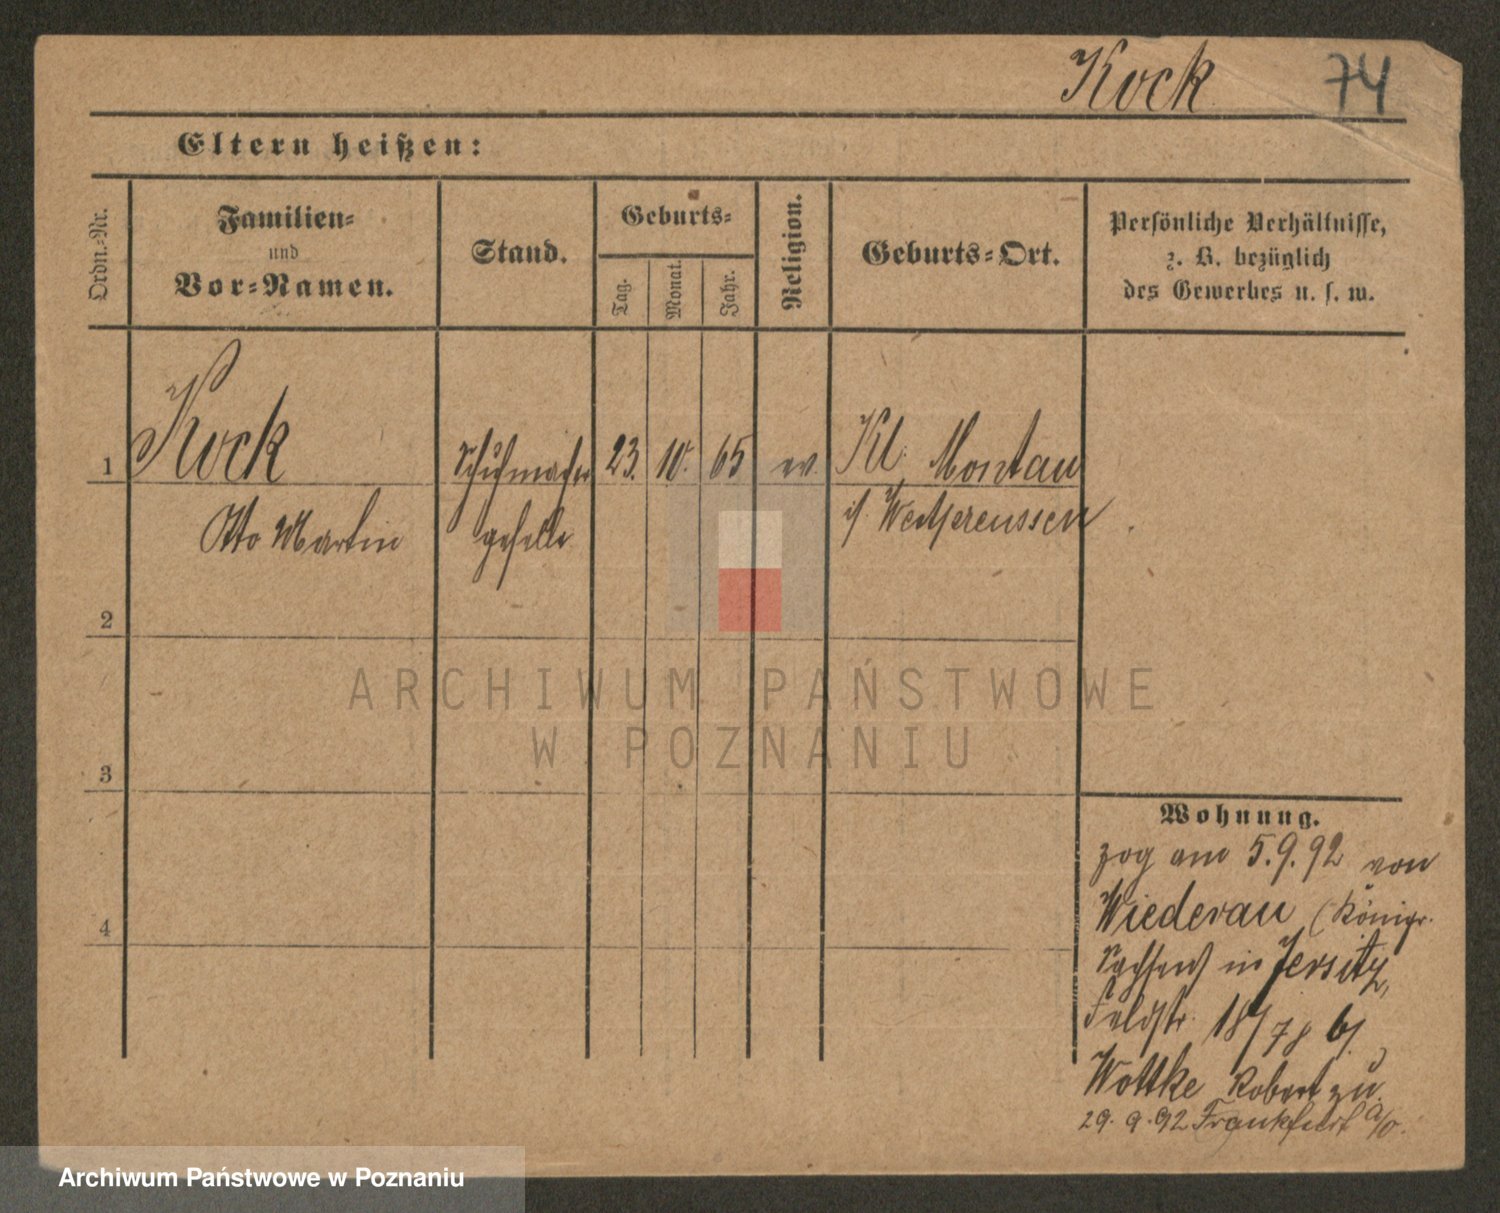 Kock 74
Eltern heißen:
Ordn.-Nr.
Familien-
und
Vor-Namen.
Stand.
Geburts-
Tag.
Monat.
Jahr.
Religion.
Geburts-Ort.
Persönliche Verhältnisse,
z. B. bezüglich
des Gewerbes u. s. w.
1 Kock Schuhmacher 23. 10. 65 ev. Kl. Montau
Otto Martin geselle i/ Westpreussen
2
3
4
Wohnung.
zog am 5.9.92 von
Wiederau (Königr.
Sachsen) in Jersitz,
Feldstr. 18/78 b/
Wottke Robert zu.
29.9.92 Frankfurt a/O.
ARCHIWUM PAŃSTWOWE
W POZNANIU
Archiwum Państwowe w Poznaniu